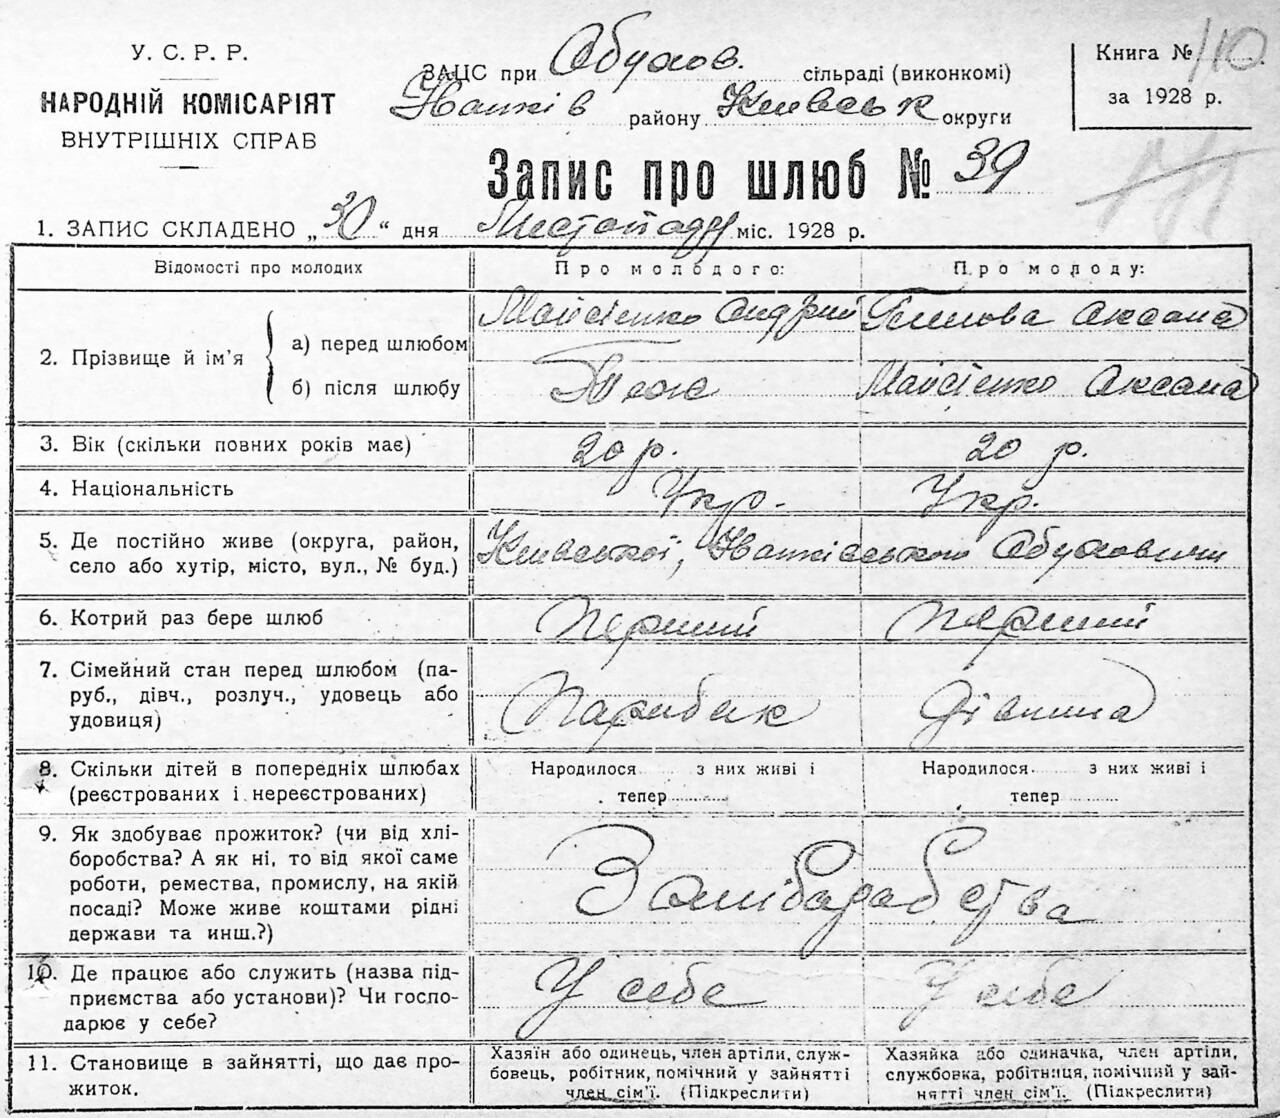 У. С. Р. Р.
НАРОДНІЙ КОМІСАРІЯТ
ВНУТРІШНІХ СПРАВ
ЗАЦС при Обухов. сільраді (виконкомі)
Іванків району Київськ округи
Книга № 110
за 1928 р.
Запис про шлюб № 39
1. ЗАПИС СКЛАДЕНО „30“ дня Листопаду міс. 1928 р.
Відомості про молодих
Про молодого:
Про молоду:
2. Прізвище й ім'я
а) перед шлюбом
Мойсієнко Андрий
Оксана
б) після шлюбу
Теж
Мойсієнко Оксана
3. Вік (скільки повних років має)
20 р.
20 р.
4. Національність
Укр.
Укр.
5. Де постійно живе (округа, район,
село або хутір, місто, вул., № буд.)
Київської, Іванківського Обуховичи
6. Котрий раз бере шлюб
Перший
перший
7. Сімейний стан перед шлюбом (па-
руб., дівч., розлуч., удовець або
удовиця)
Парубак
Дівчина
8. Скільки дітей в попередніх шлюбах
(реєстрованих і нереєстрованих)
Народилося з них живі і
тепер
Народилося з них живі і
тепер
9. Як здобуває прожиток? (чи від хлі-
боробства? А як ні, то від якої саме
роботи, ремества, промислу, на якій
посаді? Може живе коштами рідні
держави та инш.?)
10. Де працює або служить (назва під-
приємства або установи)? Чи госпо-
дарює у себе?
У себе
У себе
11. Становище в зайнятті, що дає про-
житок.
Хазяїн або одинець, член артіли, служ-
бовець, робітник, помічний у зайнятті
член сім'ї. (Підкреслити)
Хазяйка або одиначка, член артіли,
службовка, робітниця, помічний у зай-
нятті член сім'ї. (Підкреслити)